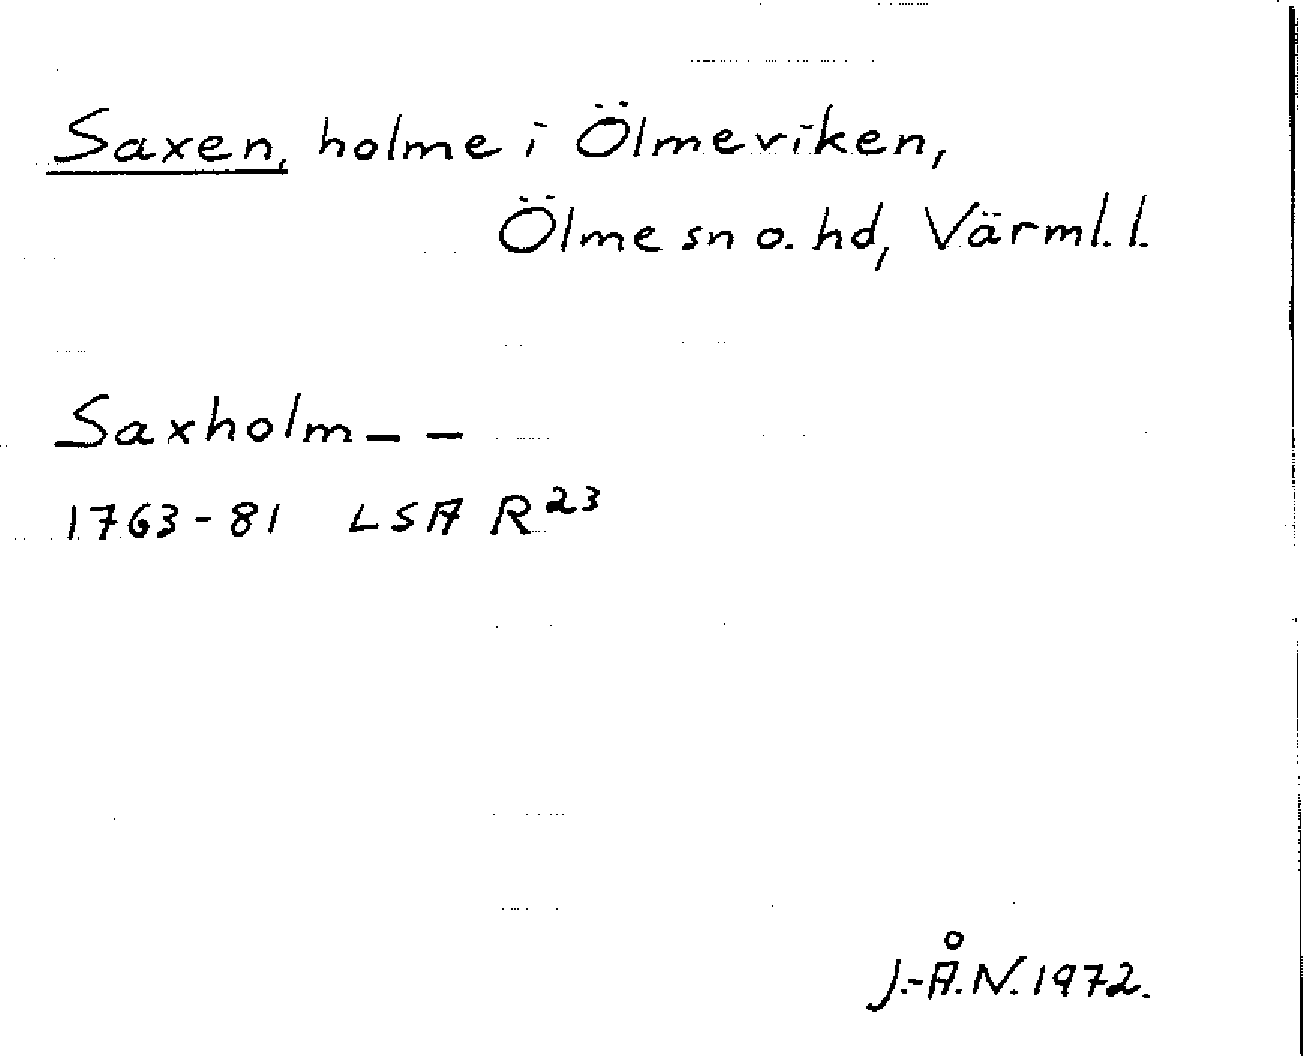 Saxen, holme i Ölmeviken,
Ölme sn o. hd, Värml. l.
Saxholm – –
1763-81 LSA R 23
J.-Å.N. 1972.